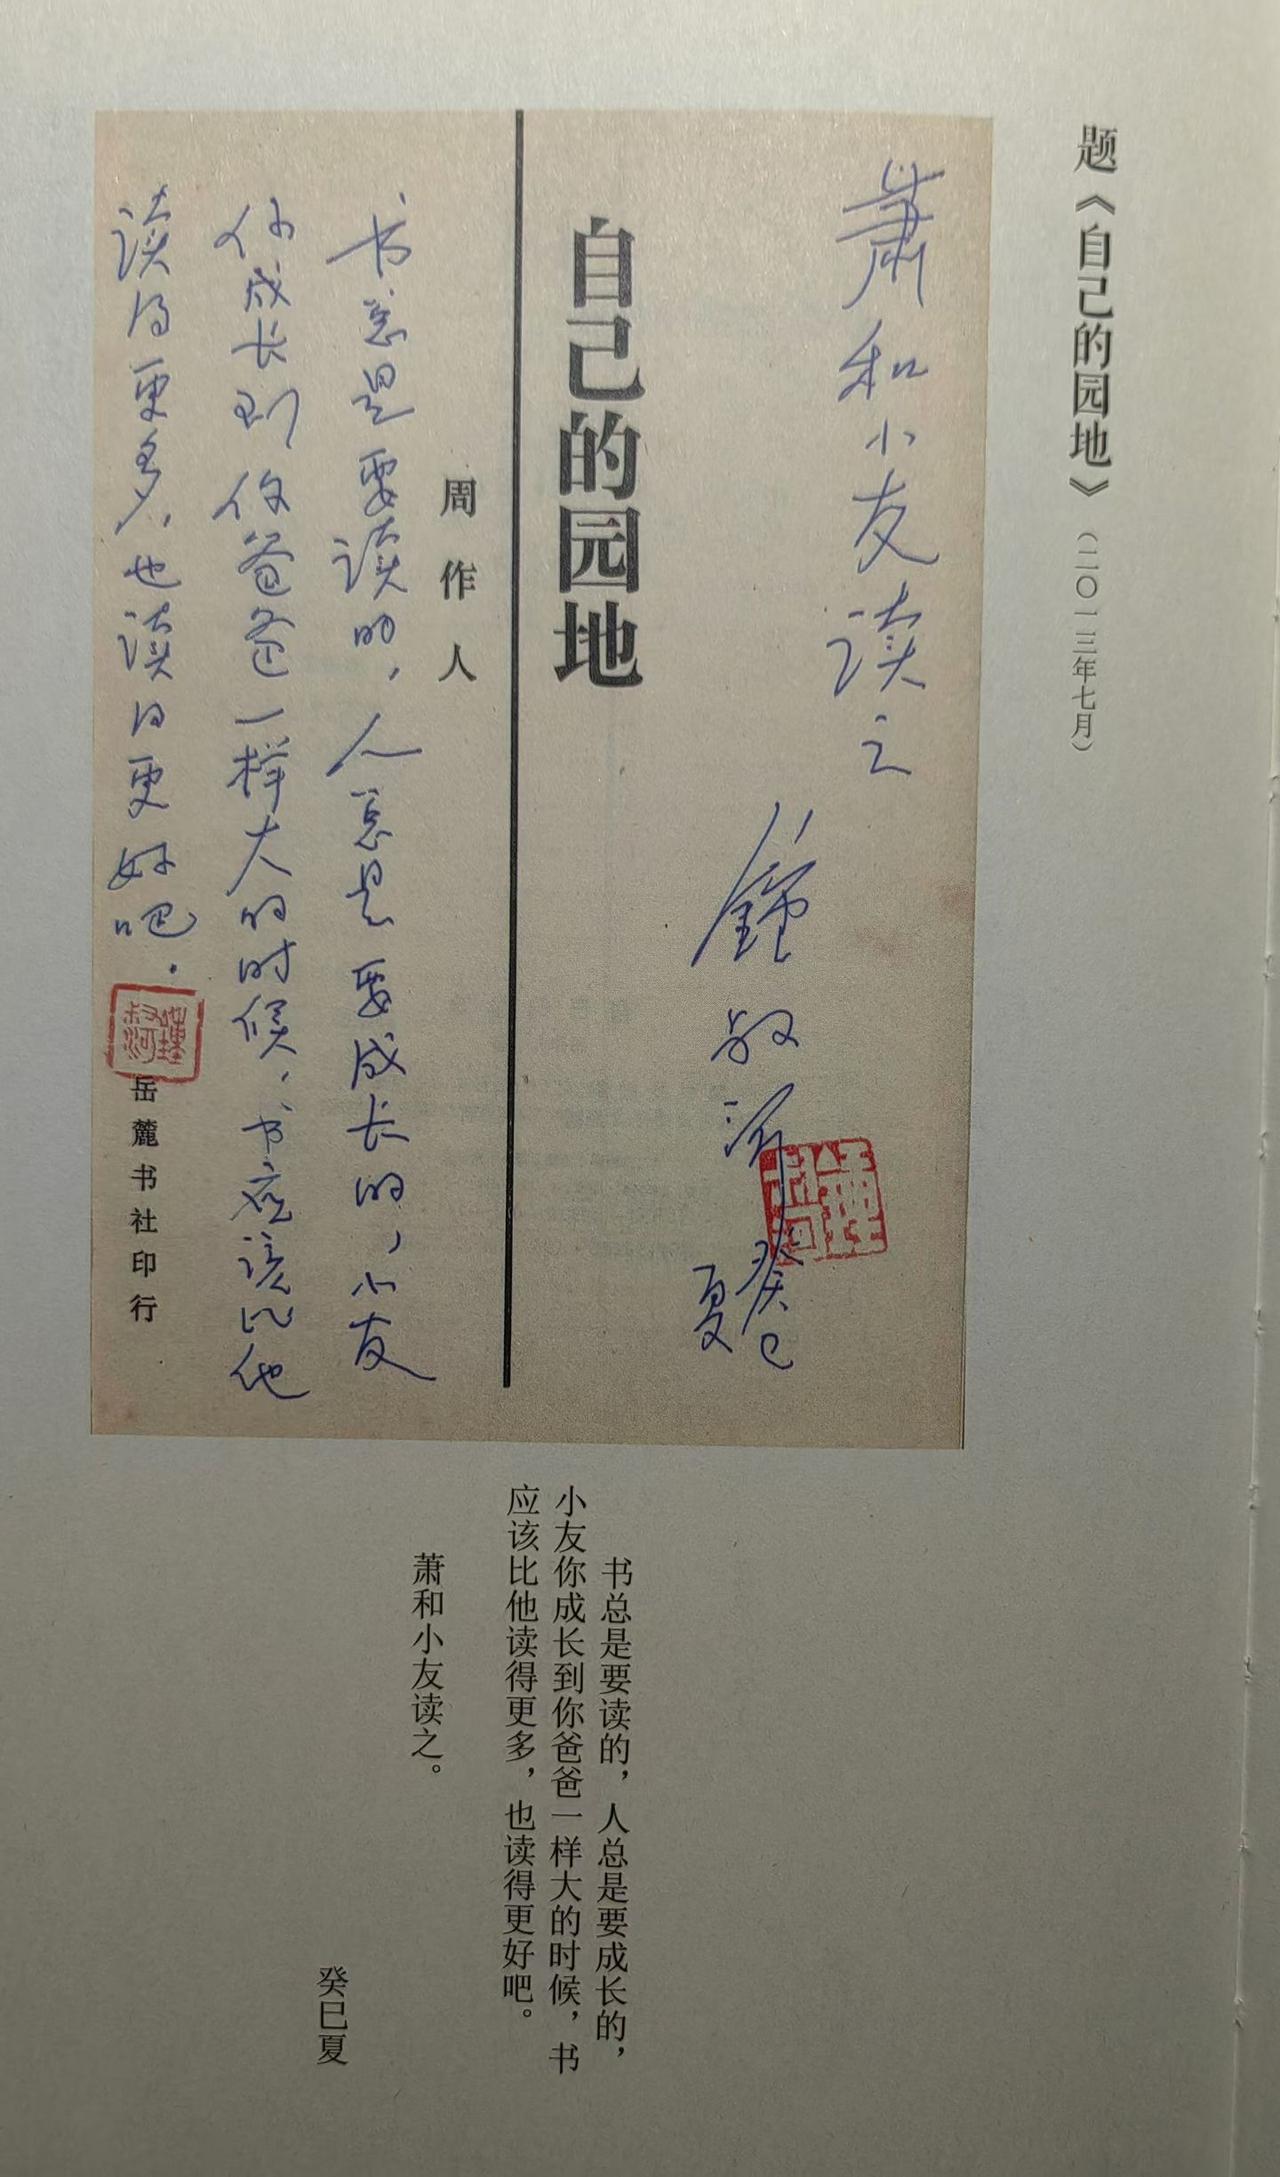 题《自己的园地》（二〇一三年七月）
萧和小友读之
鍾叔河
癸巳
夏
鍾叔河
自己的园地
周作人
书总是要读的，人总是要成长的，小友
你成长到你爸爸一样大的时候，书应该比他
读得更多，也读得更好吧.
鍾叔河
岳麓书社印行
书总是要读的，人总是要成长的，
小友你成长到你爸爸一样大的时候，书
应该比他读得更多，也读得更好吧。
萧和小友读之。
癸巳夏